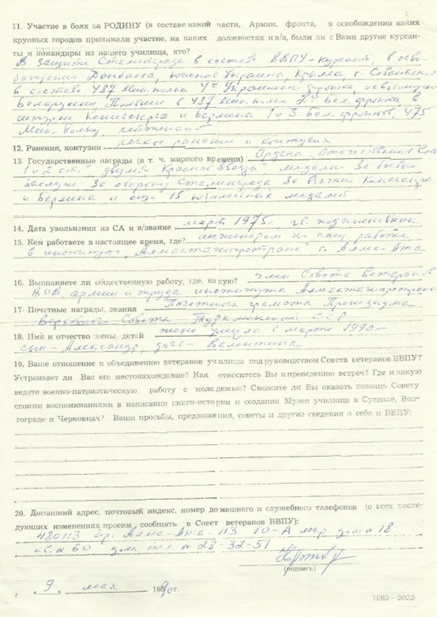 11. Участие в боях за РОДИНУ (в составе какой части, Армии, фронта, в освобождении каких
крупных городов принимали участие, на каких должностях и в/з, были ли с Вами другие курсан-
ты и командиры из нашего училища, кто?
В защите Сталинграда в составе ВВПУ-курсант, в осво-
бождении Донбасса, южной Украины, Крыма, г. Севастополь
в составе 487 мин. полка 4го Украинского фронта, освобождении
Белоруссии, Польши в 487 мин. полк 2го Бел. фронта, в
штурме Кенигсберга и Берлина 1 и 3 Бел. фронт, 475
мин. полк,
12. Ранения, контузии легкое ранение и контузия
13. Государственные награды (в т. ч. мирного времени) Ордена Отечественной
1 и 2 ст. двумя Красной Звезды, медали За боевые
заслуги За оборону Сталинграда За взятие Кенигсберга
и Берлина и еще 15 юбилейных медалей
14. Дата увольнения из СА и в/звание март 1975г. подполковник
15. Кем работаете в настоящее время, где? инженером по спец. работе
в институте "Алмаатагипротранс" г. Алма-Ата
16. Выполняете ли общественную работу, где, какую? член Совета ветеранов
ВОВ, армии и труда института Алмаатагипротранс
17. Почетные награды, звания Почетная грамота Президиума
Верховного Совета Туркменской ССР
18. Имя и отчество жены, детей жена умерла в марте 1990-
сын-Александр, дочь-Валентина
19. Ваше отношение к объединению ветеранов училища под руководством Совета ветеранов ВВПУ?
Устраивает ли Вас его местонахождение? Как относитесь Вы к проведению встреч? Где и какую
ведете военно-патриотическую работу с молодежью? Сможете ли Вы оказать помощь Совету
своими воспоминаниями в написании книги-истории и создании Музея училища в Суздале, Вол-
гограде и Черновцах? Ваши просьбы, предложения, советы и другие сведения о себе и ВВПУ:
20. Домашний адрес, почтовый индекс, номер домашнего и служебного телефонов (о всех после-
дующих изменениях просим сообщать в Совет ветеранов ВВПУ):
480113 гр. Алма-Ата-113 10-А мкр дом № 18
кв. № 60 дом. тел. № 28-32-51
(подпись)
"9" мая 1990г.
1982—2000